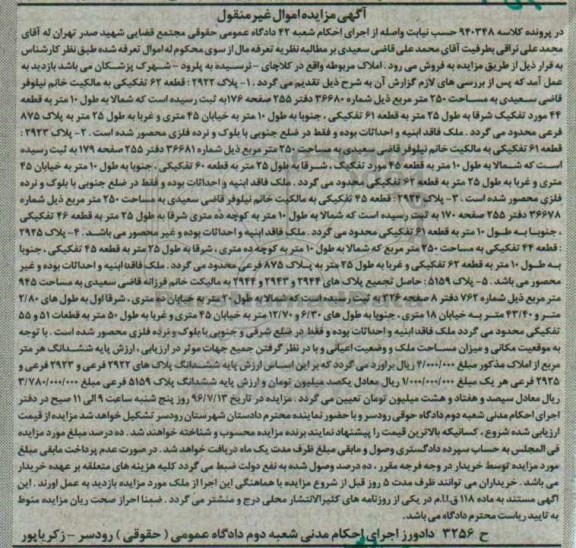 آگهی مزایده اموال غیر منقول
در پرونده کلاسه ۹۴۰۳۴۸ حسب نیابت واصله از اجرای احکام شعبه ۴۲ دادگاه عمومی حقوقی مجتمع قضایی شهید صدر تهران له آقای
محمد علی نراقی بطرفیت آقای محمد علی قاضی سعیدی بر مطالبه نظریه تعرفه مال از سوی محکوم له اموال تعرفه شده طبق نظر کارشناس
به قرار ذیل از طریق مزایده به فروش می رود. املاک مربوطه واقع در کلاچای - نرسیده به پلرود - شهرک پزشکان می باشد بازدید به
عمل آمد که پس از بررسی های لازم گزارش آن به شرح ذیل تقدیم می گردد. ۱- پلاک ۲۹۲۲ : قطعه ۶۲ تفکیکی به مالکیت خانم نیلوفر
قاضی سعیدی به مساحت ۲۵۰ متر مربع ذیل شماره ۳۶۶۸۰ دفتر ۲۵۵ صفحه ۱۷۶ به ثبت رسیده است که شمالا به طول ۱۰ متر به قطعه
۴۴ مورد تفکیک شرقا به طول ۲۵ متر به قطعه ۶۱ تفکیکی ، جنوبا به طول ۱۰ متر به خیابان ۴۵ متری و غربا به طول ۲۵ متر به پلاک ۸۷۵
فرعی محدود می گردد . ملک فاقد ابنیه و احداثات بوده و فقط در ضلع جنوبی با بلوک و نرده فلزی محصور شده است . ۲- پلاک ۲۹۲۳ :
قطعه ۶۱ تفکیکی به مالکیت خانم نیلوفر قاضی سعیدی به مساحت ۲۵۰ متر مربع ذیل شماره ۳۶۶۸۱ دفتر ۲۵۵ صفحه ۱۷۹ به ثبت رسیده
است که شمالا به طول ۱۰ متر به قطعه ۴۵ مورد تفکیک ، شرقا به طول ۲۵ متر به قطعه ۶۰ تفکیکی ، جنوبا به طول ۱۰ متر به خیابان ۴۵
متری و غربا به طول ۲۵ متر به قطعه ۶۲ تفکیکی محدود می گردد . ملک فاقد ابنیه و احداثات بوده و فقط در ضلع جنوبی با بلوک و نرده
فلزی محصور شده است . ۳- پلاک ۲۹۲۴ : قطعه ۴۵ تفکیکی به مالکیت خانم نیلوفر قاضی سعیدی به مساحت ۲۵۰ متر مربع ذیل شماره
۳۶۶۷۸ دفتر ۲۵۵ صفحه ۱۷۰ به ثبت رسیده است که شمالا به طول ۱۰ متر به کوچه ده متری شرقا به طول ۲۵ متر به قطعه ۴۶ تفکیکی
، جنوبا به طول ۱۰ متر به قطعه ۶۱ تفکیکی محدود می گردد . ملک فاقد ابنیه و احداثات بوده و غیر محصور می باشد. ۴- پلاک ۲۹۲۵
: قطعه ۴۴ تفکیکی به مساحت ۲۵۰ متر مربع که شمالا به طول ۱۰ متر به کوچه ده متری ، شرقا به طول ۲۵ متر به قطعه ۴۵ تفکیکی ، جنوبا
به طول ۱۰ متر به قطعه ۶۲ تفکیکی و غربا به طول ۲۵ متر به پلاک ۸۷۵ فرعی محدود می گردد . ملک فاقد ابنیه و احداثات بوده و غیر
محصور می باشد . ۵- پلاک ۵۱۵۹ : حاصل تجمیع پلاک های ۲۹۴۴ و ۲۹۴۳ و ۲۹۴۲ به مالیکت خانم فرزانه قاضی سعیدی به مساحت ۹۴۵
متر مربع ذیل شماره ۷۶۲ دفتر ۸ صفحه ۲۲۶ به ثبت رسیده است که شمالا به طول ۲۰ متر به خیابان ده متری ، شرقا اول به طول های ۲/۸۰
متر و ۴۳/۴۰ متر به خیابان ۱۸ متری ، جنوبا به طول های ۶/۳۰ و ۱۲/۷۰ متر به خیابان ۴۵ متری و غربا به طول ۵۰ متر به قطعات ۵۱ و ۵۵
تفکیکی محدود می گردد ملک فاقد ابنیه و احداثات بوده و فقط در ضلع شرقی و جنوبی با بلوک و نرده فلزی محصور شده است . با توجه
به موقعیت مکانی و میزان مساحت ملک و وضعیت اعیانی و با در نظر گرفتن جمیع جهات موثر در ارزیابی ، ارزش پایه ششدانگ هر متر
مربع از املاک مذکور مبلغ ۴/۰۰۰/۰۰۰ ریال براورد می گردد که بر این اساس ارزش پایه ششدانگ پلاک های ۲۹۲۲ فرعی و ۲۹۲۳ فرعی و
۲۹۲۵ فرعی هر یک مبلغ ۱/۰۰۰/۰۰۰/۰۰۰ ریال معادل یکصد میلیون تومان و ارزش پایه ششدانگ پلاک ۵۱۵۹ فرعی مبلغ ۳/۷۸۰/۰۰۰/۰۰۰
ریال معادل سیصد و هفتاد و هشت میلیون تومان تعیین می گردد . مزایده در تاریخ ۹۶/۷/۱۳ روز پنج شنبه ساعت ۹ الی ۱۱ صبح در دفتر
اجرای احکام مدنی شعبه دوم دادگاه حوقی رودسر و با حضور نماینده محترم دادستان شهرستان رودسر تشکیل خواهد شد مزایده از قیمت
ارزیابی شده شروع ، کسانیکه بالاترین قیمت را پیشنهاد نمایند برنده مزایده محسوب و شناخته خواهند شد . ده درصد مبلغ مورد مزایده
فی المجلس به حساب سپرده دادگستری وصول و مابقی مبلغ ظرف مدت یک ماه دریافت خواهد شد . در صورت عدم پرداخت مابقی مبلغ
مورد مزایده توسط خریدار در وجه فرجه مقرر ، ده درصد وصول شده به نفع دولت ضبط می گردد کلیه هزینه های متعلقه بر عهده خریدار
می باشد . خریداران می توانند ظرف مدت ۵ روز قبل از شروع مزایده با هماهنگی این اجرا از ملک مورد مزایده بازدید به عمل اورند . این
آگهی مستند به ماده ۱۱۸ ق.ا.م در یکی از روزنامه های کثیرالانتشار محلی درج و منتشر می گردد . ضمنا احراز صحت ریان مزایده منوط
به تایید ریاست محترم دادگاه می باشد.
ح ۳۲۵۶ دادورز اجرای احکام مدنی شعبه دوم دادگاه عمومی ( حقوقی ) رودسر - زکریاپور